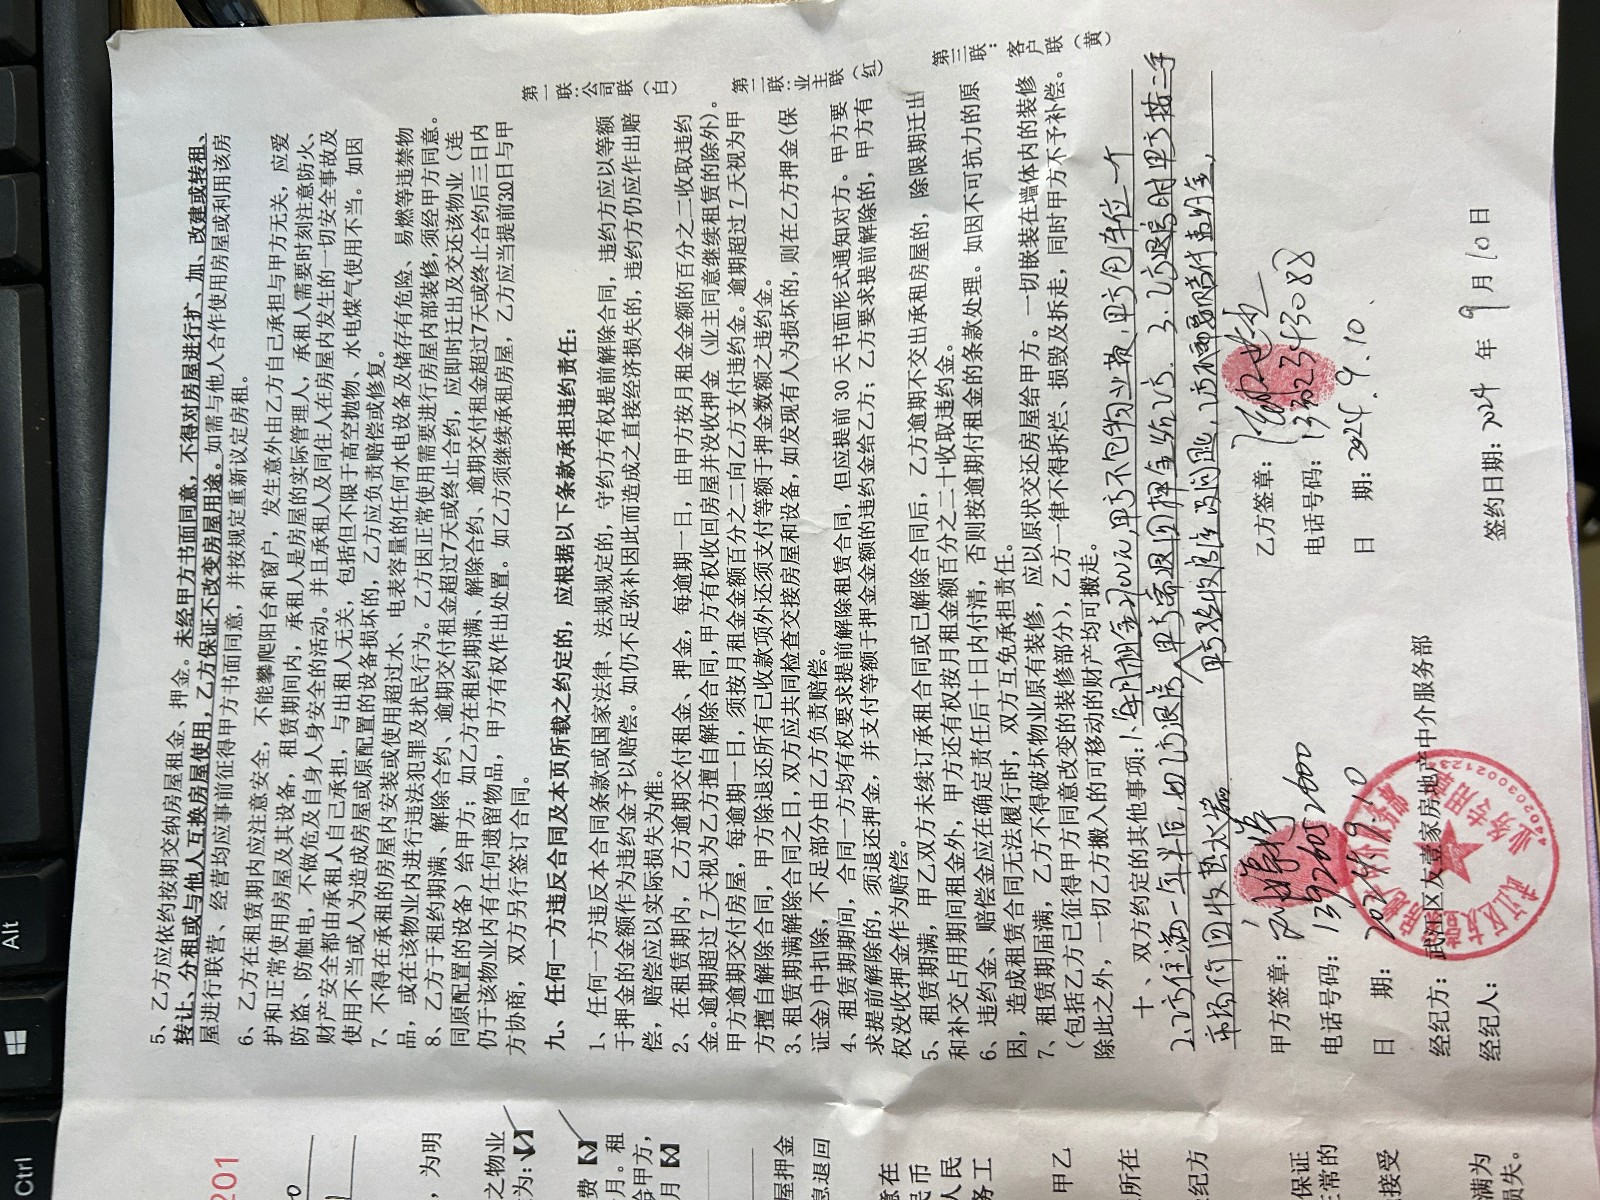 5、乙方应依约按期交纳房屋租金、押金。未经甲方书面同意，不得对房屋进行扩、加、改建或转租、
转让、分租或与他人互换房屋使用，乙方保证不改变房屋用途。如需与他人合作使用房屋或利用该房
屋进行联营、经营均应事前征得甲方书面同意，并按规定重新议定房租。
6、乙方在租赁期内应注意安全，不能攀爬阳台和窗户，发生意外由乙方自己承担与甲方无关，应爱
护和正常使用房屋及其设备，租赁期间内，承租人是房屋的实际管理人，承租人需要时刻注意防火、
防盗、防触电，不做危及自身人身安全的活动。并且承租人及同住人在房屋内发生的一切安全事故及
财产安全都由承租人自己承担，与出租人无关，包括但不限于高空抛物、水电煤气使用不当。如因
使用不当或人为造成房屋或原配置的设备损坏的，乙方应负责赔偿或修复。
7、不得在承租的房屋内安装或使用超过水、电表容量的任何水电设备及储存有危险、易燃等违禁物
品，或在该物业内进行违法犯罪及扰民行为。乙方因正常使用需要进行房屋内部装修，须经甲方同意。
8、乙方于租约期满、解除合约、逾期交付租金超过7天或终止合约，应即时迁出及交还该物业（连
同原配置的设备）给甲方；如乙方在租约期满、解除合约、逾期交付租金超过7天或终止合约后三日内
仍于该物业内有任何遗留物品，甲方有权作出处置。如乙方须继续承租房屋，乙方应当提前30日与甲
方协商，双方另行签订合同。
九、任何一方违反合同及本页所载之约定的，应根据以下条款承担违约责任：
1、任何一方违反本合同条款或国家法律、法规规定的，守约方有权提前解除合同，违约方应以等额
于押金的金额作为违约金予以赔偿。如仍不足弥补因此而造成之直接经济损失的，违约方仍应作出赔
偿，赔偿应以实际损失为准。
2、在租赁期内，乙方逾期交付租金、押金，每逾期一日，由甲方按月租金金额的百分之二收取违约
金。逾期超过 7 天视为乙方擅自解除合同，甲方有权收回房屋并没收押金（业主同意继续租赁的除外）。
甲方逾期交付房屋，每逾期一日，须按月租金金额百分之二向乙方支付违约金。逾期超过 7 天视为甲
方擅自解除合同，甲方除退还所有已收款项外还须支付等额于押金数额之违约金。
3、租赁期满解除合同之日，双方应共同检查交接房屋和设备，如发现有人为损坏的，则在乙方押金（保
证金）中扣除，不足部分由乙方负责赔偿。
4、租赁期期间，合同一方均有权要求提前解除租赁合同，但应提前 30 天书面形式通知对方。甲方要
求提前解除的，须退还押金，并支付等额于押金金额的违约金给乙方；乙方要求提前解除的，甲方有
权没收押金作为赔偿。
5、租赁期满，甲乙双方未续订承租合同或已解除合同后，乙方逾期不交出承租房屋的，除限期迁出
和补交占用期间租金外，甲方还有权按月租金额百分之二十收取违约金。
6、违约金、赔偿金应在确定责任后十日内付清，否则按逾期付租金的条款处理。如因不可抗力的原
因，造成租赁合同无法履行时，双方互免承担责任。
7、租赁期届满，乙方不得破坏物业原有装修，应以原状交还房屋给甲方。一切嵌装在墙体内的装修
（包括乙方已征得甲方同意改变的装修部分），乙方一律不得拆烂、损毁及拆走，同时甲方不予补偿。
除此之外，一切乙方搬入的可移动的财产均可搬走。
十、双方约定的其他事项：1.每月租金2000元，甲方不包物业费，甲方包车位一个
2.乙方住满一年半后，乙方退房，甲方需退回押金给乙方. 3.乙方退房时甲方按二手
市场价回收热水器
甲方签章：
电话号码：13926052600
日 期：2024.9.10
经纪方：武江区友壹家房地产中介服务部
经纪人：
乙方签章：
电话号码：13023453088
日 期：2024.9.10.
签约日期：2024 年 9 月 10 日
第一联：公司联（白）
第二联：业主联（红）
第三联：客户联（黄）
201
，为明
之物业
为：
费
月。租
甲方，
月
屋押金
息退回
意在
民币
人民
务工
甲乙
所在
纪方
保证
正常的
接受
满为
损失。
Alt
Ctrl